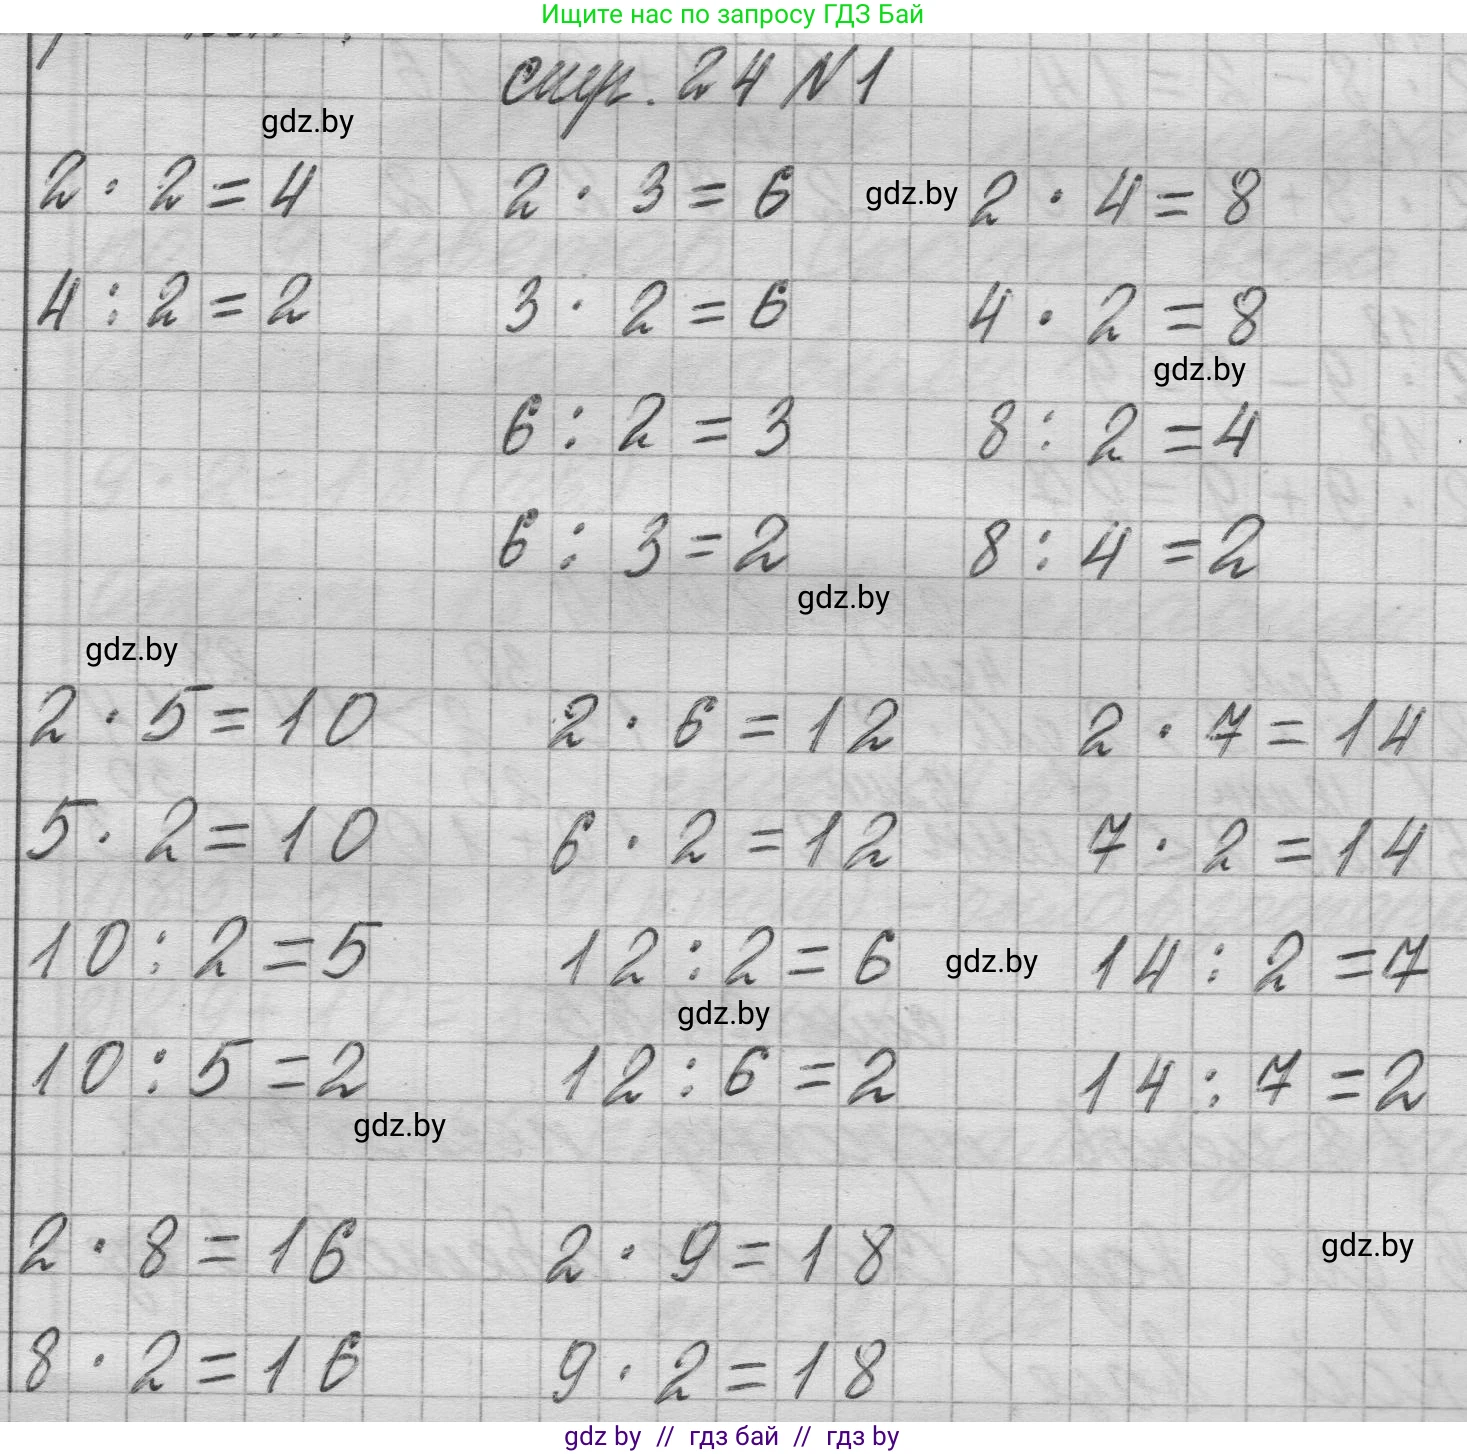 Ищите нас по запросу ГДЗ Бай
стр. 24 №1
gdz.by
2 · 2 = 4 2 · 3 = 6 gdz.by 2 · 4 = 8
4 : 2 = 2 3 · 2 = 6 4 · 2 = 8
gdz.by
6 : 2 = 3 8 : 2 = 4
6 : 3 = 2 8 : 4 = 2
gdz.by
gdz.by
2 · 5 = 10 2 · 6 = 12 2 · 7 = 14
5 · 2 = 10 6 · 2 = 12 7 · 2 = 14
10 : 2 = 5 12 : 2 = 6 gdz.by 14 : 2 = 7
gdz.by
10 : 5 = 2 12 : 6 = 2 14 : 7 = 2
gdz.by
2 · 8 = 16 2 · 9 = 18 gdz.by
8 · 2 = 16 9 · 2 = 18
gdz by // гдз бай // гдз by